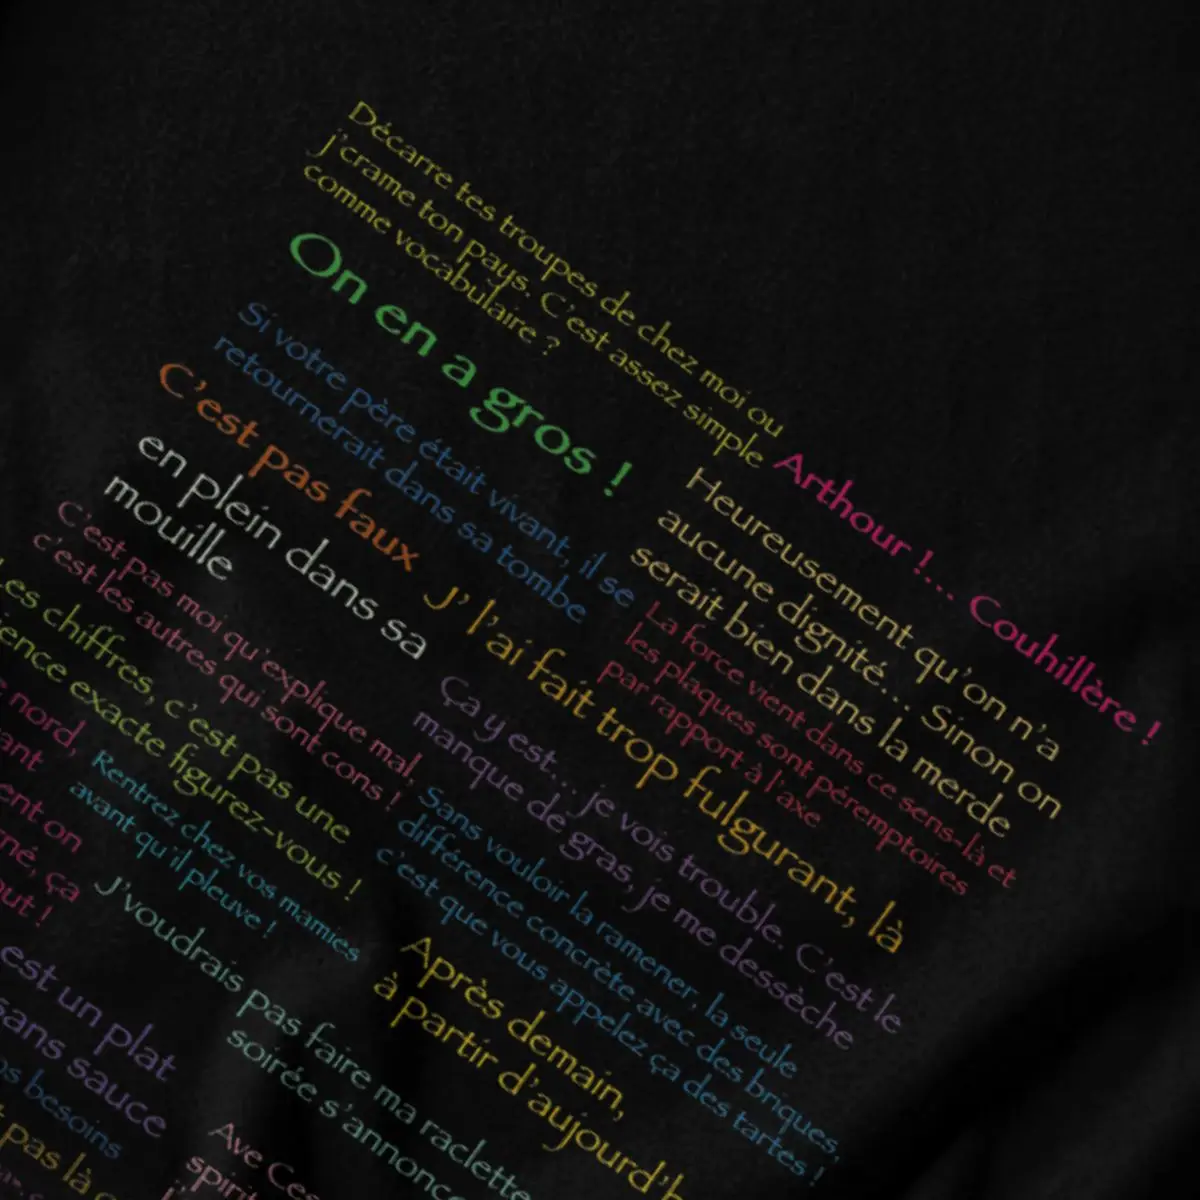 Décarre tes troupes de chez moi ou
j'crame ton pays. C'est assez simple
comme vocabulaire ?
On en a gros !
Arthour !... Couhillère !
Si votre père était vivant, il se
retournerait dans sa tombe
Heureusement qu'on n'a
aucune dignité... Sinon on
serait bien dans la merde
C'est pas faux
en plein dans sa
mouille
J' l'ai fait trop fulgurant, là
La force vient dans ce sens-là et
les plaques sont péremptoires
par rapport à l'axe
C'est pas moi qu'explique mal,
c'est les autres qui sont cons !
Ça y est... je vois trouble. C'est le
manque de gras, je me dessèche
Les chiffres, c'est pas une
exacte figurez-vous !
Sans vouloir la ramener, la seule
différence concrète avec des briques,
c'est que vous appelez ça des tartes !
nord,
Rentrez chez vos mamies
avant qu'il pleuve !
on
ça
Après demain,
à partir d'aujourd'h
J'voudrais pas faire ma raclette
soirée s'annonce
est un plat
sans sauce
besoins
pas là
Ave Ces